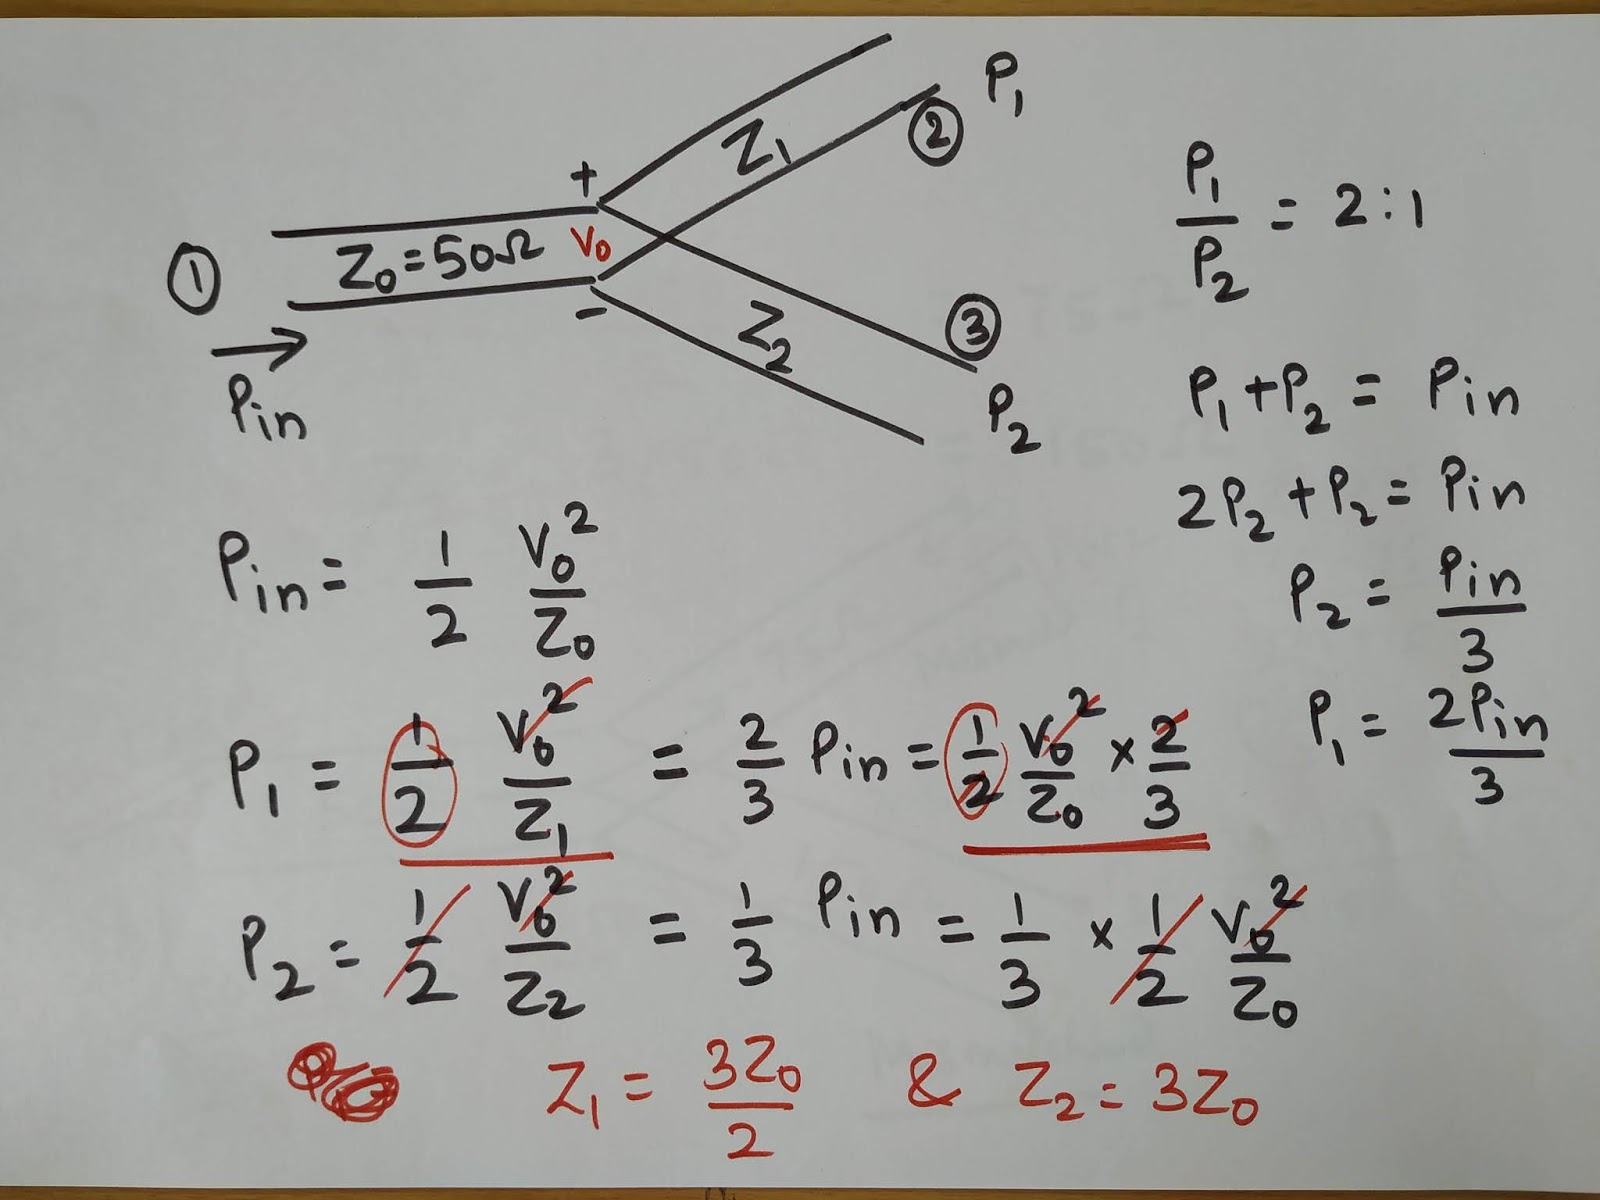 P₁
②
Z₁
+
Z₀=50Ω
V₀
-
①
Pin
Z₂
③
P₂
P₁/P₂ = 2:1
P₁+P₂ = Pin
2P₂+P₂ = Pin
P₂ = Pin/3
P₁ = 2Pin/3
Pin = 1/2 V₀²/Z₀
P₁ = 1/2 V₀²/Z₁ = 2/3 Pin = 1/2 V₀²/Z₀ × 2/3
P₂ = 1/2 V₀²/Z₂ = 1/3 Pin = 1/3 × 1/2 V₀²/Z₀
Z₁ = 3Z₀/2 & Z₂ = 3Z₀